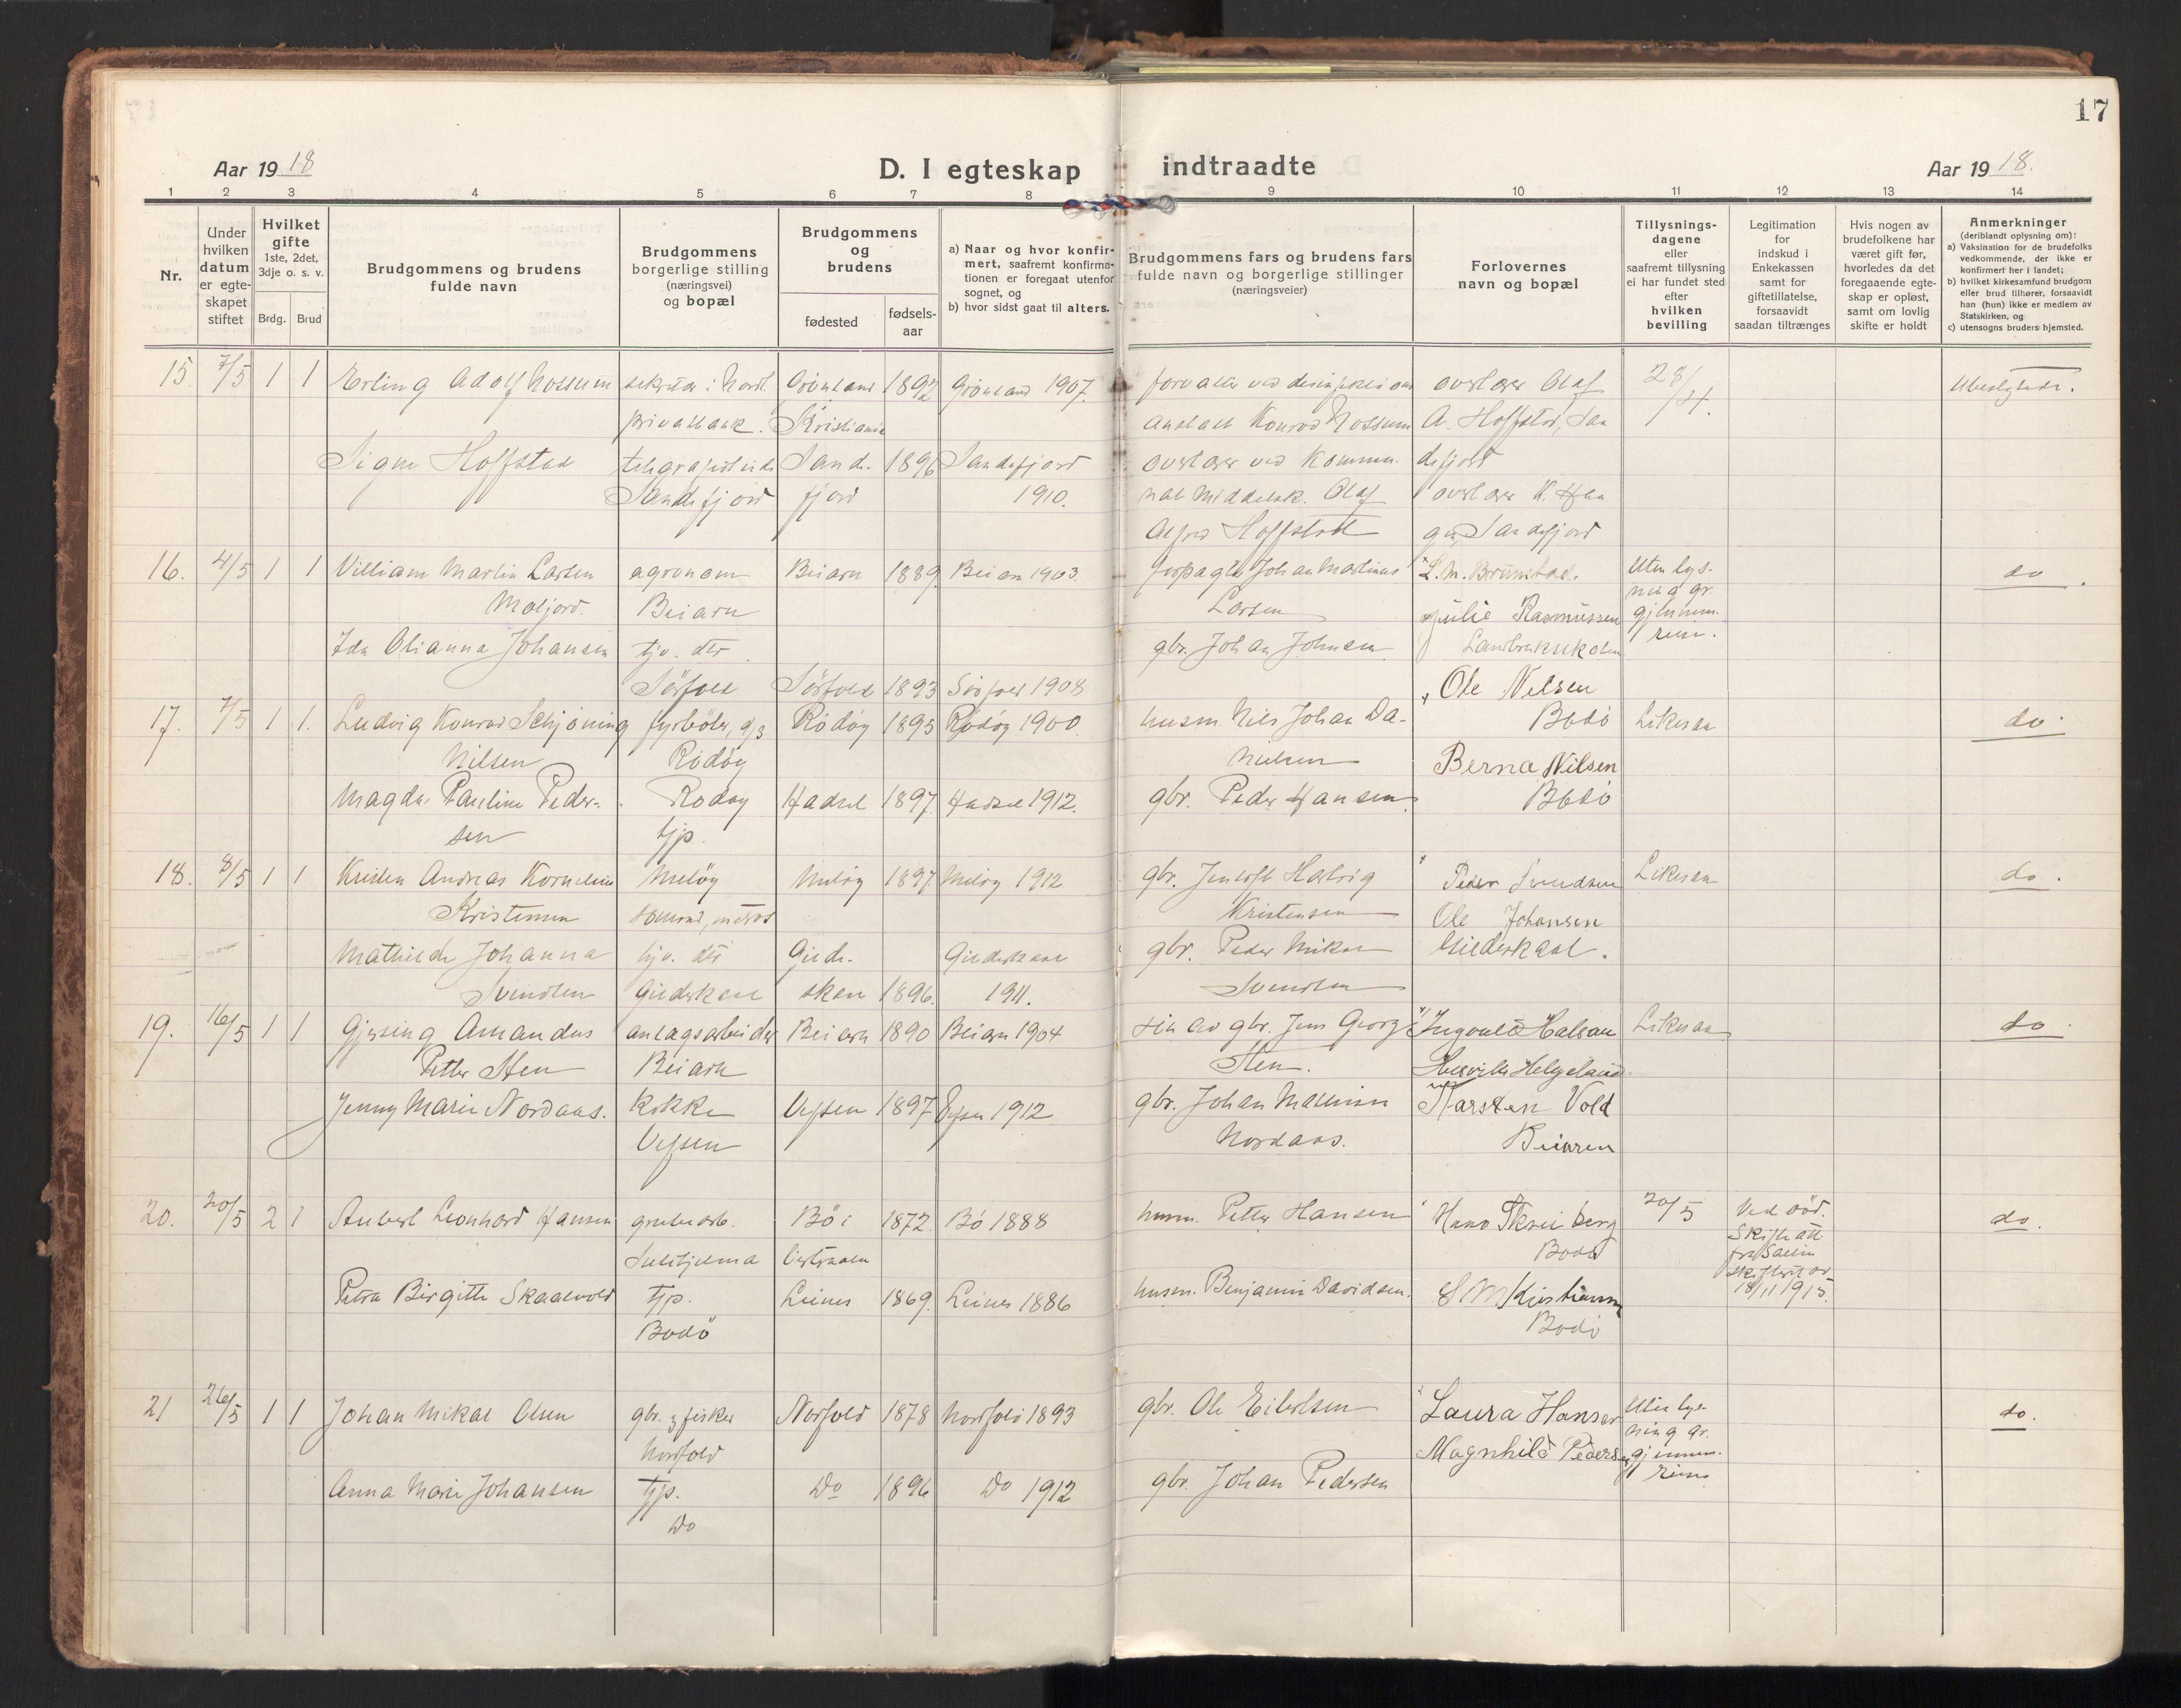 17
Aar 1918
D. I egteskap indtraadte
Aar 1918.
1 2 3 4 5 6 7 8 9 10 11 12 13 14
Nr.
Under
hvilken
datum
er egte-
skapet
stiftet
Hvilket
gifte
1ste, 2det,
3dje o. s. v.
Brdg. Brud
Brudgommens og brudens
fulde navn
Brudgommens
borgerlige stilling
(næringsvei)
og bopæl
Brudgommens
og
brudens
fødested
fødsels-
aar
a) Naar og hvor konfir-
mert, saafremt konfirma-
tionen er foregaat utenfor
sognet, og
b) hvor sidst gaat til alters.
Brudgommens fars og brudens fars
fulde navn og borgerlige stillinger
(næringsveier)
Forlovernes
navn og bopæl
Tillysnings-
dagene
eller
saafremt tillysning
ei har fundet sted
efter
hvilken
bevilling
Legitimation
for
indskud i
Enkekassen
samt for
giftetillatelse,
forsaavidt
saadan tiltrænges
Hvis nogen av
brudefolkene har
været gift før,
hvorledes da det
foregaaende egte-
skap er opløst,
samt om lovlig
skifte er holdt
Anmerkninger
(deriblandt oplysning om):
a) Vaksination for de brudefolks
vedkommende, der ikke er
konfirmert her i landet;
b) hvilket kirkesamfund brudgom
eller brud tilhører, forsaavidt
han (hun) ikke er medlem av
Statskirken, og
c) utensogns bruders hjemsted.
15. 7/5 1 1 Erling Adolf Nossum sekretær i Nordl. Grønland 1892 Grønland 1907. forvalter ved desinfektions overlærer Olaf 28/4. Ubeslegtede.
privatbank. Kristiania anstalt Konrad Nossum A. Hoffstad, San
Signe Hoffstad telegrafistinde Sande- 1896 Sandefjord overlærer ved Kommu- defjord
Sandefjord fjord 1910. nal Middelsk. Olaf overlærer K. Haa
Alfred Hoffstad Sandefjord
16. 4/5 1 1 Villiam Martin Larsen agronom Beiarn 1889 Beiarn 1903. forpagter Johan Martinus L. M. Brunstad. Uten lys- do.
Moljord. Beiarn Larsen Julie Rasmussen ning gr.
gjennem-
reise.
Ida Olianna Johansen tjv. dtr. gbr. Johan Johnsen Landbrukskolen
Sörfold Sörfold 1893 Sörfold 1908 Ole Nilsen
17. 7/5 1 1. Ludvig Konrad Schjöning fyrböter, d/s Rödöy 1895 Rödöy 1900. husm. Nils Johan Da- Bodö Likesaa do.
Nilsen Rödöy nielsen Berna Nilsen
Magda Pauline Peder- Rödöy Hadsel 1897 Hadsel 1912. gbr. Peder Hansen Bodö
sen tjp.
18. 8/5 1 1 Kristen Andreas Kornelius Melöy Melöy 1897 Melöy 1912 gbr. Hartvig Peder Svendsen Likesaa do.
Kristensen Kristensen Ole Johansen
Mathilde Johanna tjv. dtr Gilde- Gildeskaal gbr. Peder Mikal Gildeskaal.
Svendsen Gildeskaal skaal 1896. 1911. Svendsen
19. 16/5 1 1 Gjersing Amandus anlægsarbeider Beiarn 1890 Beiarn 1904 sön av gbr. Jens Georg Ingvald Halsan Likesaa do.
Petter Sten Beiarn Sten. Helgeland
Jenny Marie Nordaas. Kokke Vefsen 1897 Vefsen 1912 gbr. Johan Karsten Vold
Vefsen Nordaas. Beiaren
20. 20/5 2 1 Aubert Leonhard Hansen grubearb. Bö i 1872. Bö 1888 husm. Petter Hansen Hans Skreiberg 20/5 Ved död. do.
Sulitjelma Vesteraalen Bodö Skifteatt.
fra Salten
skifteret av
18/11 1915.
Petra Birgitte Skaalvold tjp. Leines 1869. Leines 1886 husm. Benjamin Davidsen. S M Kristiansen
Bodö Bodö
21 26/5 1 1 Johan Mikal Olsen gbr. & fisker Norfold 1878 Norfold 1893 gbr. Ole Eilertsen Laura Hansen Uten lys- do.
Norfold Magnhild Pedersen ning gr.
gjennem-
reise
Anna Marie Johansen tjp. Do 1896 Do 1912 gbr. Johan Pedersen
Do